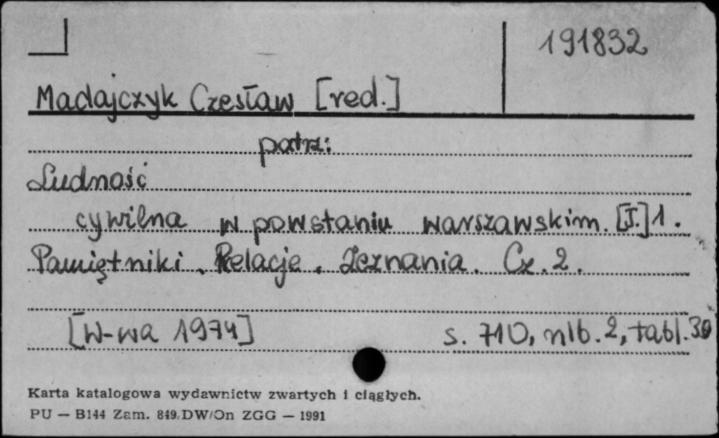 191832
Madajczyk Czesław [red.]
patrz:
Ludność
cywilna w powstaniu warszawskim. [T.] 1.
Pamiętniki. Relacje. Zeznania. Cz. 2.
[W-wa 1974]
s. 710, nlb. 2, tabl. 30
Karta katalogowa wydawnictw zwartych i ciągłych.
PU — B144 Zam. 849/DW/On ZGG — 1991